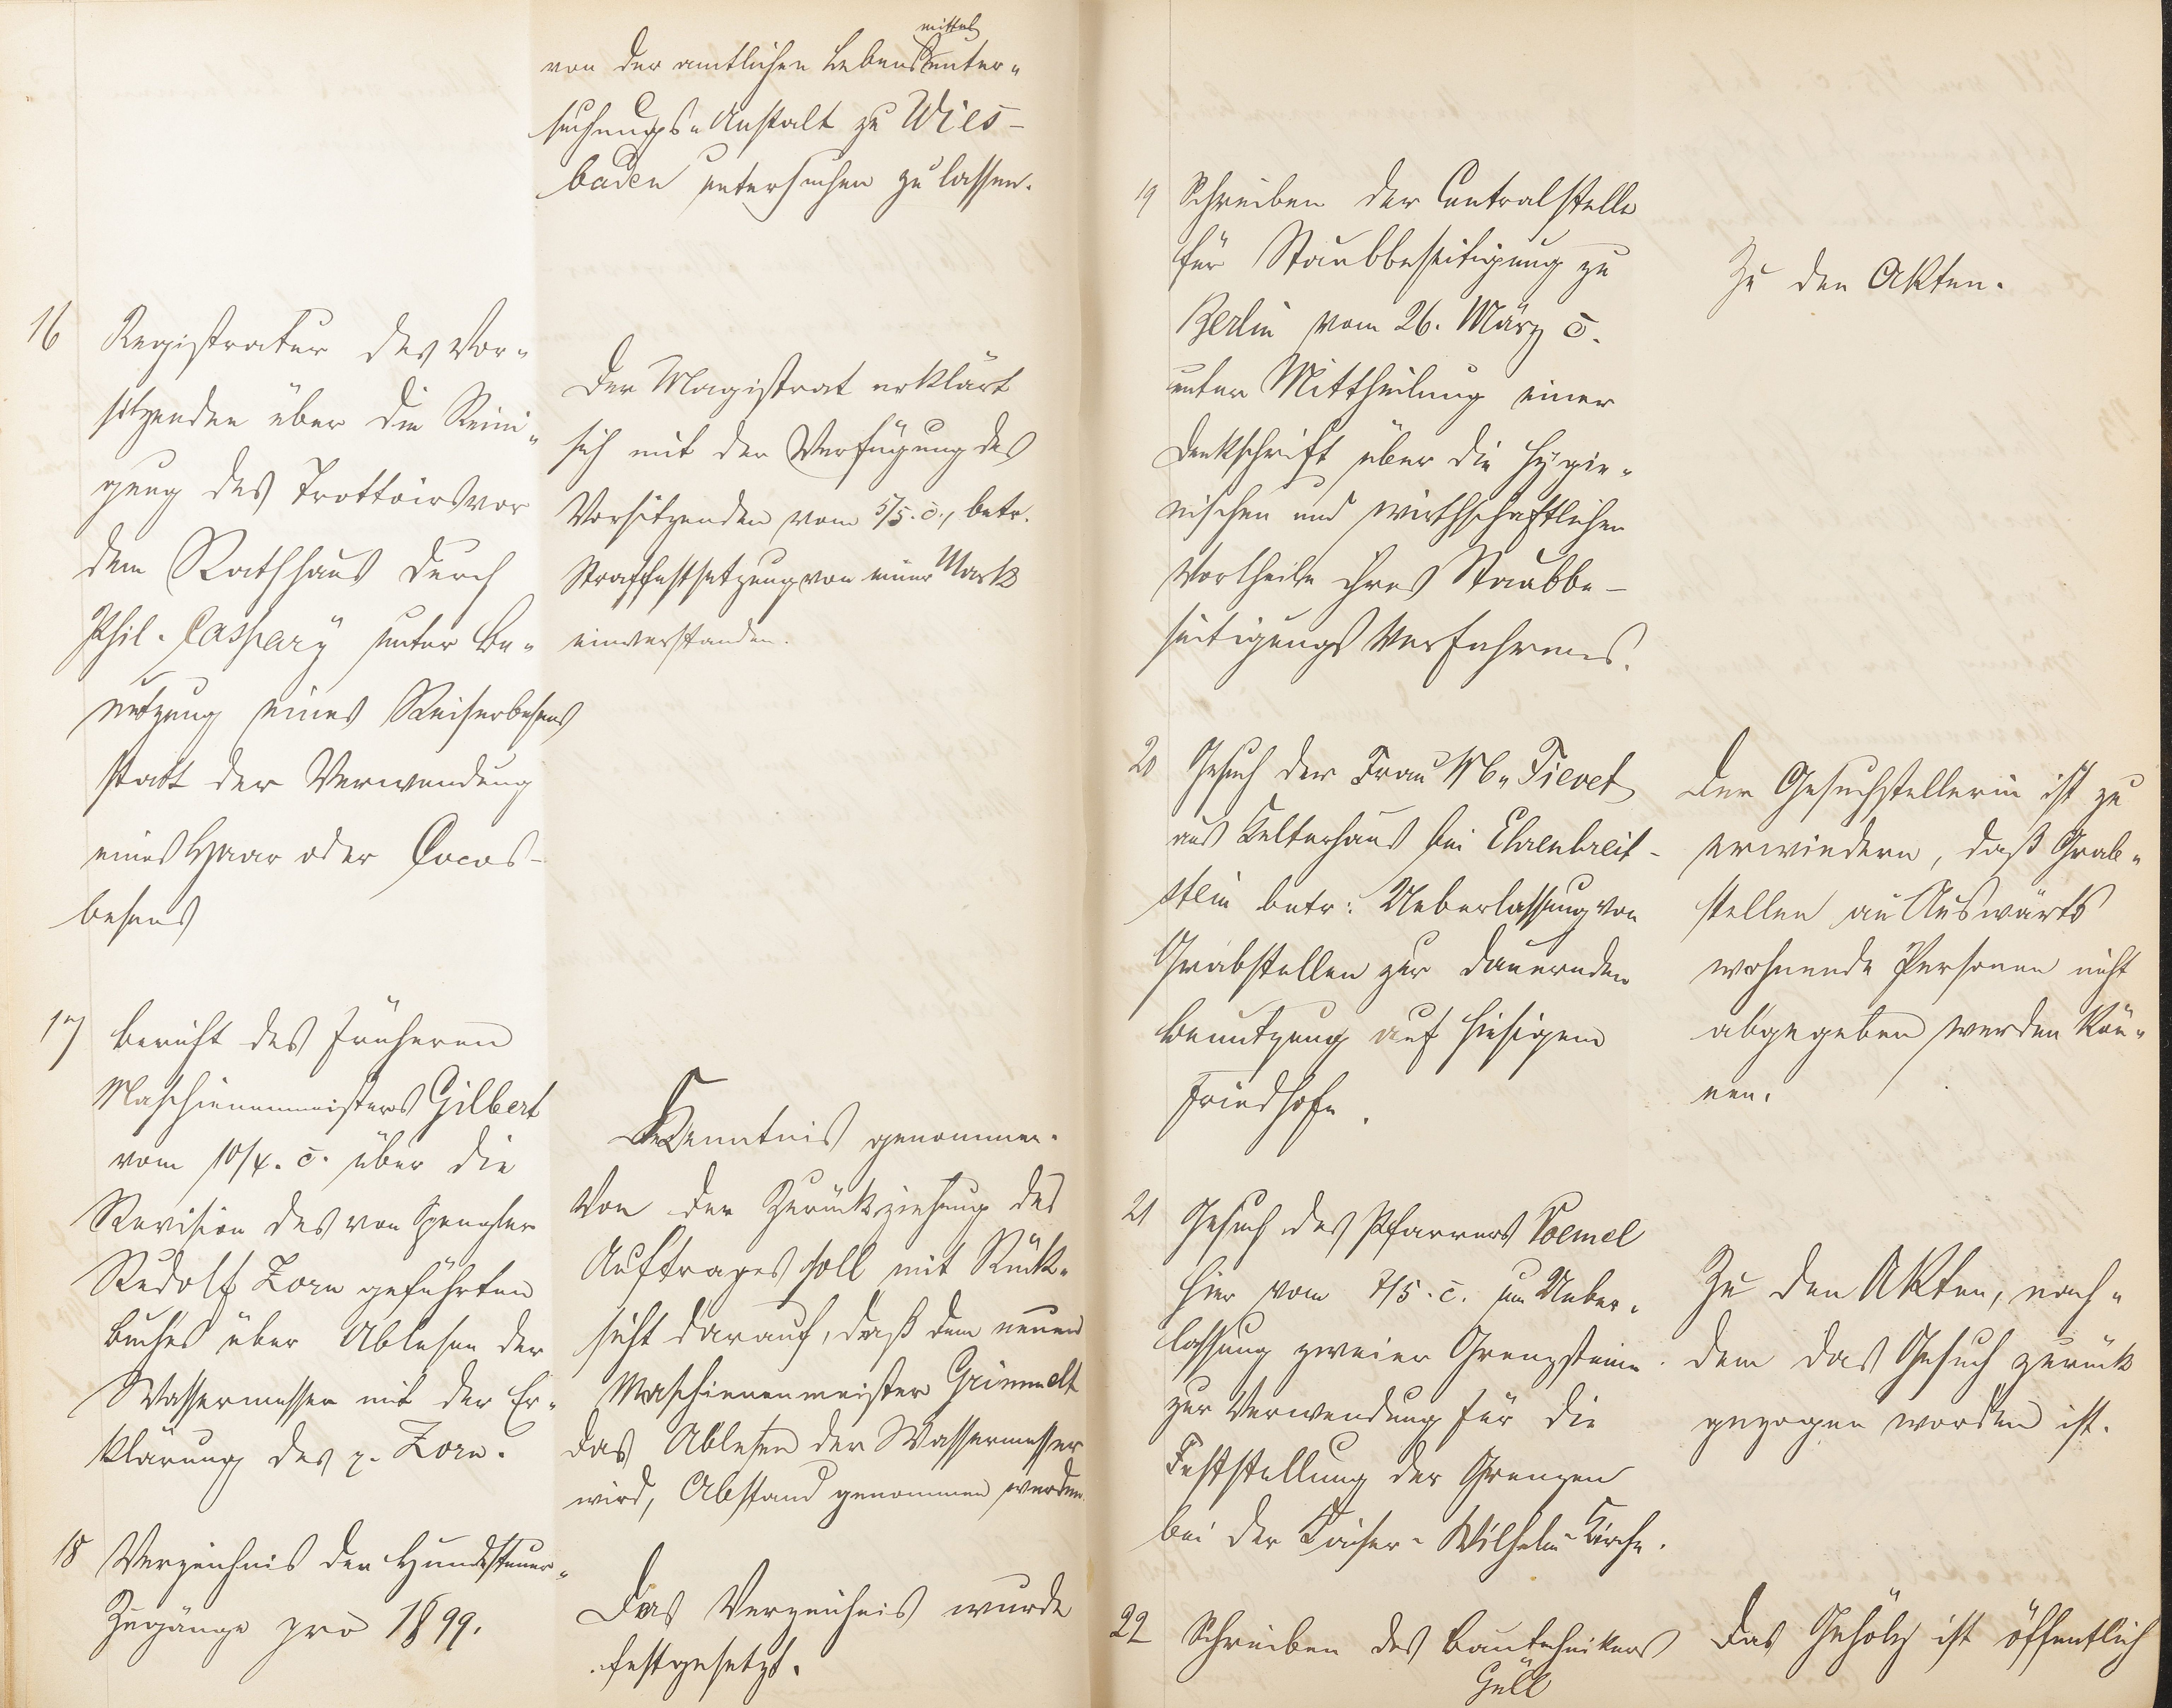 von der amtlichen Lebensmittelunter-
suchungs-Anstalt zu Wies-
baden untersuchen zu lassen.
16 Registratur des Vor-
sitzenden über die Reini-
gung des Trottoirs vor
dem Rathhaus durch
Phil. Caspary unter Be-
nutzung eines Reiserbesens
statt der Verwendung
eines Haar oder Cocos-
besens
Der Magistrat erklärt
sich mit der Verfügung des
Vorsitzenden vom 5/5. c., betr.
Straffestsetzung von einer Mark
einverstanden.
17 Bericht des früheren
Maschienenmeisters Gilbert
vom 10/4. c. über die
Revision des von Spengler
Rudolf Zorn geführten
Buches über Ablesen der
Wassermesser mit der Er-
klärung des p. Zorn.
Kenntnis genommen.
Von der Zurückziehung des
Auftrages soll mit Rück-
sicht darauf, daß dem neuen
Maschienenmeister Grimmelt
das Ablesen der Wassermesser
wird, Abstand genommen werden.
18 Verzeichnis der Hundesteuer-
Zugänge pro 1899.
Das Verzeichnis wurde
festgesetzt.
19 Schreiben der Centralstelle
für Staubbeseitigung zu
Berlin vom 26. März c.
unter Mittheilung einer
Denkschrift über die hygie-
nischen und wirthschaftlichen
Vortheile ihres Staubbe-
seitigungs Verfahrens.
Zu den Akten.
20 Gesuch der Frau Ww. Fievet
aus Kelterhaus bei Ehrenbreit-
stein betr: Ueberlassung von
Grabstellen zur dauernden
Benutzung auf hiesigem
Friedhofe.
Der Gesuchstellerin ist zu
erwiedern, daß Grab-
stellen an Auswärts
wohnende Personen nicht
abgegeben werden kön-
nen.
21 Gesuch des Pfarrers Voemel
hier vom 7/5. c. um Ueber-
lassung zweier Grenzsteine
zur Verwendung für die
Feststellung der Grenzen
bei der Kaiser-Wilhelm-Kirche.
Zu den Akten, nach-
dem das Gesuch zurück
gezogen worden ist.
22 Schreiben des Bautechnikers
Güll
Das Gehölz ist öffentlich